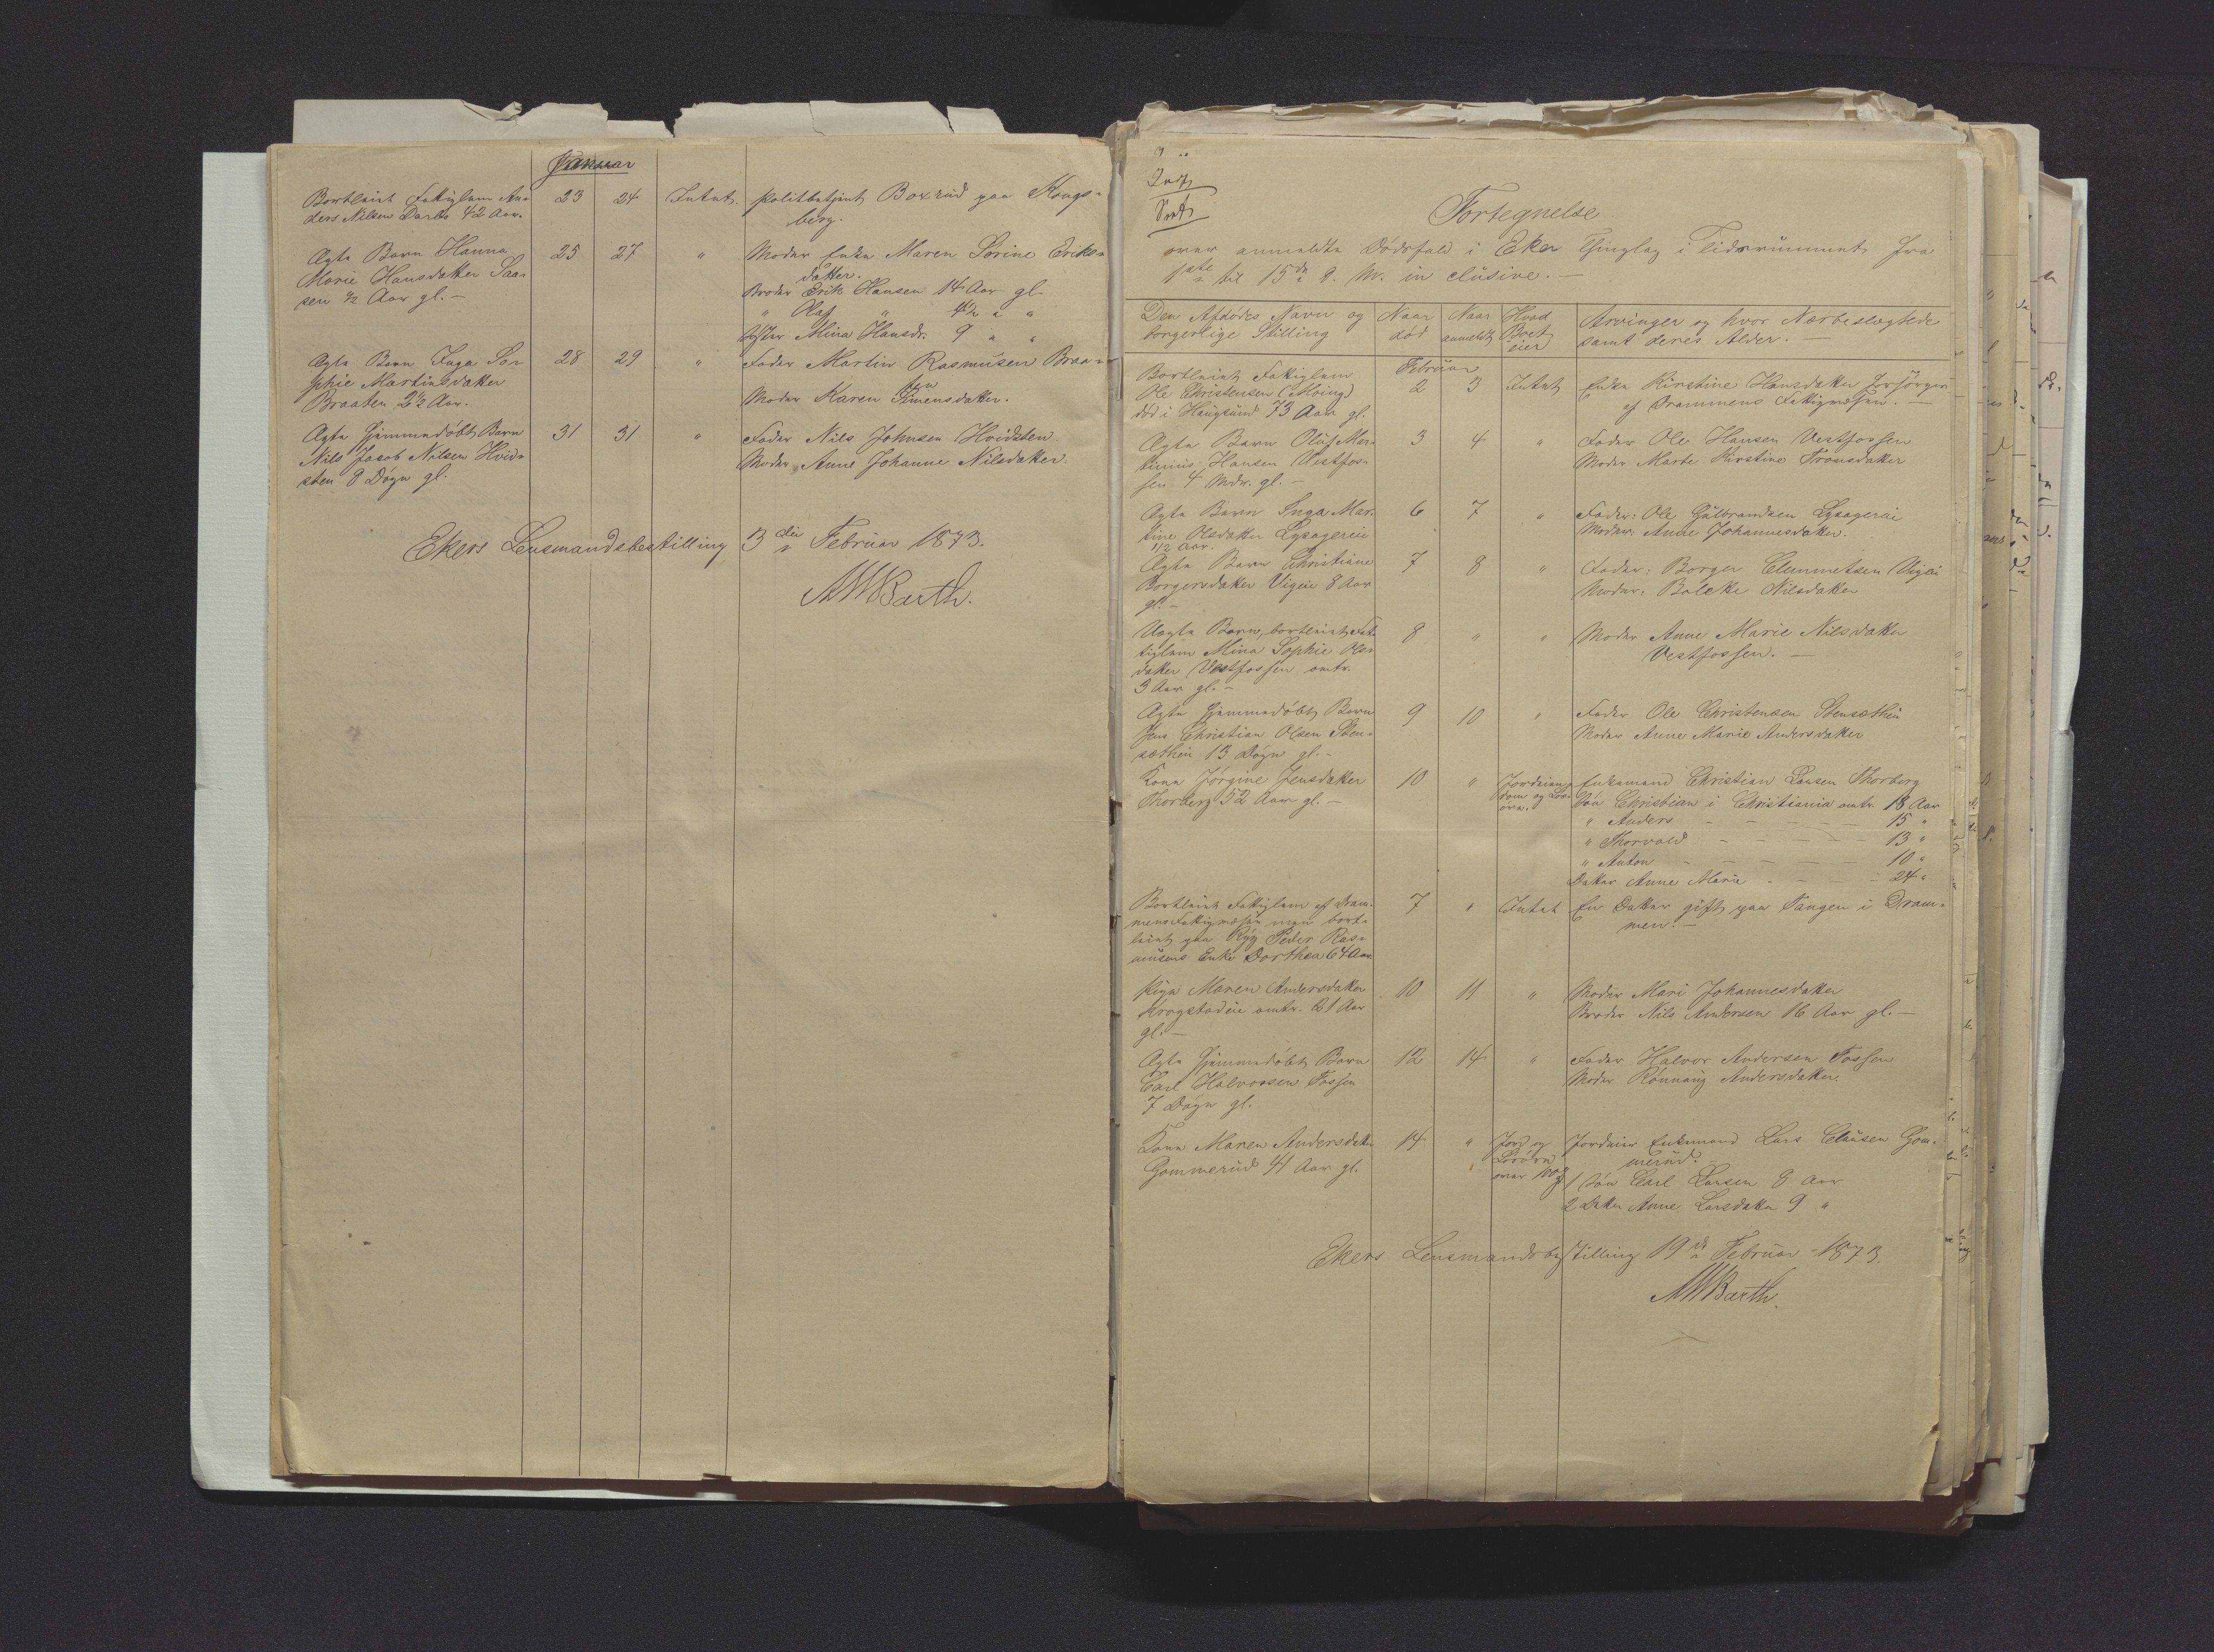 Januar
Bortleiet Fattiglem An-
ders Nilsen Darbo 42 Aar.
23 24 Intet. Politbetjent Boxrud paa Kongs-
berg.
Ægte Barn Hanna
Marie Hansdatter Saa-
sen ½ Aar gl. –
25 27 " Moder Enke Maren Sorine Eriks-
datter.
Broder Erik Hansen 14 Aar gl.
" Olaf " 4½ " "
Søster Mina Hansdr. 9 " "
Ægte Barn Inga So-
phie Martinsdatter
Braaten 2½ Aar.
28 29 " Fader Martin Rasmusen Braa-
ten
Moder Karen Simensdatter.
Ægte hjemmedøbt Barn
Nils Jacob Nilsen Hvid-
sten 8 Døgn gl.
31 31 " Fader Nils Johnsen Hvidsten.
Moder Anne Johanne Nilsdatter.
Ekers Lensmandsbestilling 3die Februar 1873.
MWBarth.
Fortegnelse
over anmeldte Dødsfald i Eker Thinglag i Tidsrummet fra
1ste til 15de d. M. inclusive. –
Den Afdødes Navn og
borgerlige Stilling
Naar
død
Naar
anmeldt
Hvad
Boet
eier
Arvinger og hvor Nærbeslægtede
samt deres Alder. –
Februar
Bortleiet Fattiglem
Ole Christensen (Moing)
død i Haugsund 73 Aar gl.
2 3 Intet Enke Kirstine Hansdatter forsørges
af Drammens Fattigvæsen. –
Ægte Barn Oluf Mar-
tinius Hansen Vestfos-
sen 4 Mdr. gl. –
3 4 " Fader Ole Hansen Vestfossen
Moder Marte Kirstine Tronsdatter
Ægte Barn Inga Mar-
tine Olsdatter Lysagereie
1/2 Aar.
6 7 " Fader: Ole Gulbrandsen Lysagerei
Moder: Anne Johannesdatter.
Ægte Barn Christiane
Borgersdatter Vigeie 8 Aar
gl. –
7 8 " Fader: Borger Clemmetsen Vigei
Moder: Boletke Nilsdatter
Uægte Barn, bortleiet Fat-
tiglem Mina Sophie Ols-
datter Vestfossen omtr.
3 Aar gl. –
8 " " Moder Anne Marie Nilsdatter
Vestfossen. –
Ægte hjemmedøbt Barn
Jens Christian Olsen Sten-
sætheie 13 Døgn gl. –
9 10 " Fader Ole Christensen Stensætheie
Moder Anne Marie Andersdatter
Kone Jørgine Jensdatter
Thorberg 52 Aar gl. –
10 " Jordeien-
dom og Løs-
øre.
Enkemand Christian Larsen Thorberg
Søn Christian i Christiania omtr. 18 Aar
" Anders – – – – – 15 "
" Thorvald – – – – – 13 "
" Anton – – – – – 10 "
Datter Anne Marie – – – – 24 "
Bortleiet Fattiglem af Dram-
mens Fattigvæsen men bort-
leiet paa Ryg Peder Ras-
musens Enke Dorthea 64 Aar
7 " Intet En Datter gift paa Tangen i Dram-
men. –
Pige Maren Andersdatter
Krogstadeie omtr. 21 Aar
gl. –
10 11 " Moder Mari Johannesdatter
Broder Nils Andersen 16 Aar gl. –
Ægte hjemmedøbt Barn
Carl Halvorsen Fossen
7 Døgn gl.
12 14 " Fader Halvor Andersen Fossen
Moder Rønnaug Andersdatter.
Kone Maren Andersdatter
Gommerud 41 Aar gl.
14 " Jord og
Løsøre
over 100
Jordeier Enkemand Lars Clausen Gom-
merud.
1 Søn Carl Larsen 8 Aar
2 Datter Anne Larsdatter 9 "
Ekers Lensmandsbestilling 19de Februar 1873.
MWBarth.